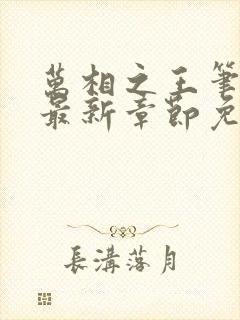 萬相之王筆
最新章節免
長溝落月